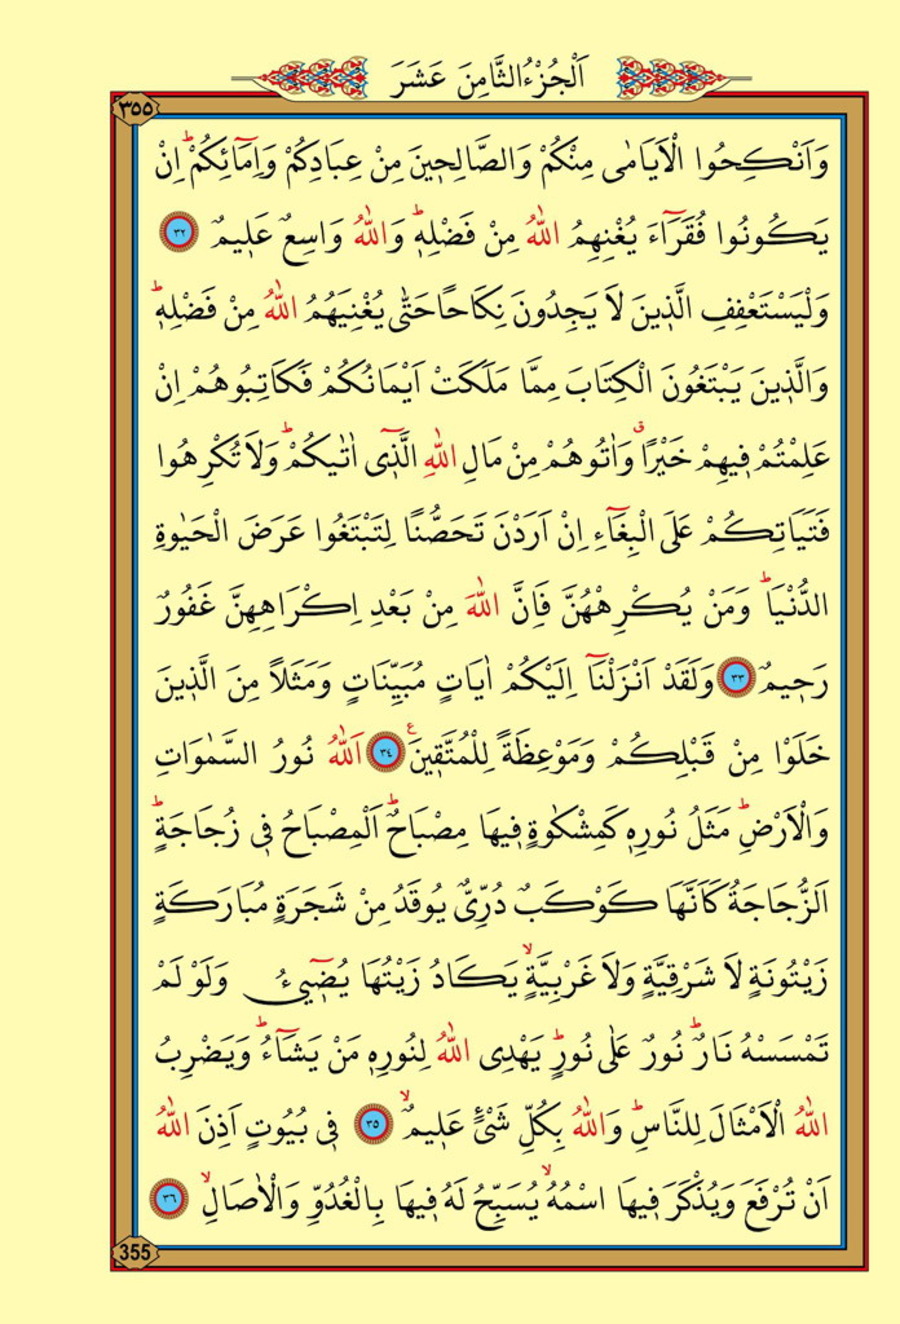 اَلْجُزْءُ الثَّامِنَ عَشَرَ
٣٥٥
وَاَنْكِحُوا الْاَيَامٰى مِنْكُمْ وَالصَّالِح۪ينَ مِنْ عِبَادِكُمْ وَاِمَٓائِكُمْۜ اِنْ
يَكُونُوا فُقَرَٓاءَ يُغْنِهِمُ اللّٰهُ مِنْ فَضْلِه۪ۜ وَاللّٰهُ وَاسِعٌ عَل۪يمٌ ٣٢
وَلْيَسْتَعْفِفِ الَّذ۪ينَ لَا يَجِدُونَ نِكَاحًا حَتّٰى يُغْنِيَهُمُ اللّٰهُ مِنْ فَضْلِه۪ۜ
وَالَّذ۪ينَ يَبْتَغُونَ الْكِتَابَ مِمَّا مَلَكَتْ اَيْمَانُكُمْ فَكَاتِبُوهُمْ اِنْ
عَلِمْتُمْ ف۪يهِمْ خَيْرًاۗ وَاٰتُوهُمْ مِنْ مَالِ اللّٰهِ الَّذ۪ٓى اٰتٰيكُمْۜ وَلَا تُكْرِهُوا
فَتَيَاتِكُمْ عَلَى الْبِغَٓاءِ اِنْ اَرَدْنَ تَحَصُّنًا لِتَبْتَغُوا عَرَضَ الْحَيٰوةِ
الدُّنْيَاۜ وَمَنْ يُكْرِهْهُنَّ فَاِنَّ اللّٰهَ مِنْ بَعْدِ اِكْرَاهِهِنَّ غَفُورٌ
رَح۪يمٌ ٣٣ وَلَقَدْ اَنْزَلْنَٓا اِلَيْكُمْ اٰيَاتٍ مُبَيِّنَاتٍ وَمَثَلًا مِنَ الَّذ۪ينَ
خَلَوْا مِنْ قَبْلِكُمْ وَمَوْعِظَةً لِلْمُتَّق۪ينَ ع ٣٤ اَللّٰهُ نُورُ السَّمٰوَاتِ
وَالْاَرْضِۜ مَثَلُ نُورِه۪ كَمِشْكٰوةٍ ف۪يهَا مِصْبَاحٌۜ اَلْمِصْبَاحُ ف۪ى زُجَاجَةٍۜ
اَلزُّجَاجَةُ كَاَنَّهَا كَوْكَبٌ دُرِّىٌّ يُوقَدُ مِنْ شَجَرَةٍ مُبَارَكَةٍ
زَيْتُونَةٍ لَا شَرْقِيَّةٍ وَلَا غَرْبِيَّةٍۙ يَكَادُ زَيْتُهَا يُض۪ٓيءُ وَلَوْ لَمْ
تَمْسَسْهُ نَارٌۜ نُورٌ عَلٰى نُورٍۜ يَهْدِى اللّٰهُ لِنُورِه۪ مَنْ يَشَٓاءُۜ وَيَضْرِبُ
اللّٰهُ الْاَمْثَالَ لِلنَّاسِۜ وَاللّٰهُ بِكُلِّ شَىْءٍ عَل۪يمٌۙ ٣٥ ف۪ى بُيُوتٍ اَذِنَ اللّٰهُ
اَنْ تُرْفَعَ وَيُذْكَرَ ف۪يهَا اسْمُهُۙ يُسَبِّحُ لَهُ ف۪يهَا بِالْغُدُوِّ وَالْاٰصَالِۙ ٣٦
355